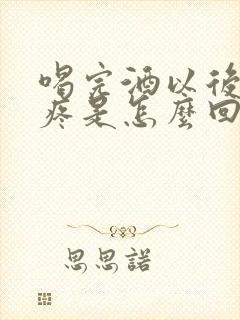 喝完酒以後
疼是怎麼回
思思諾